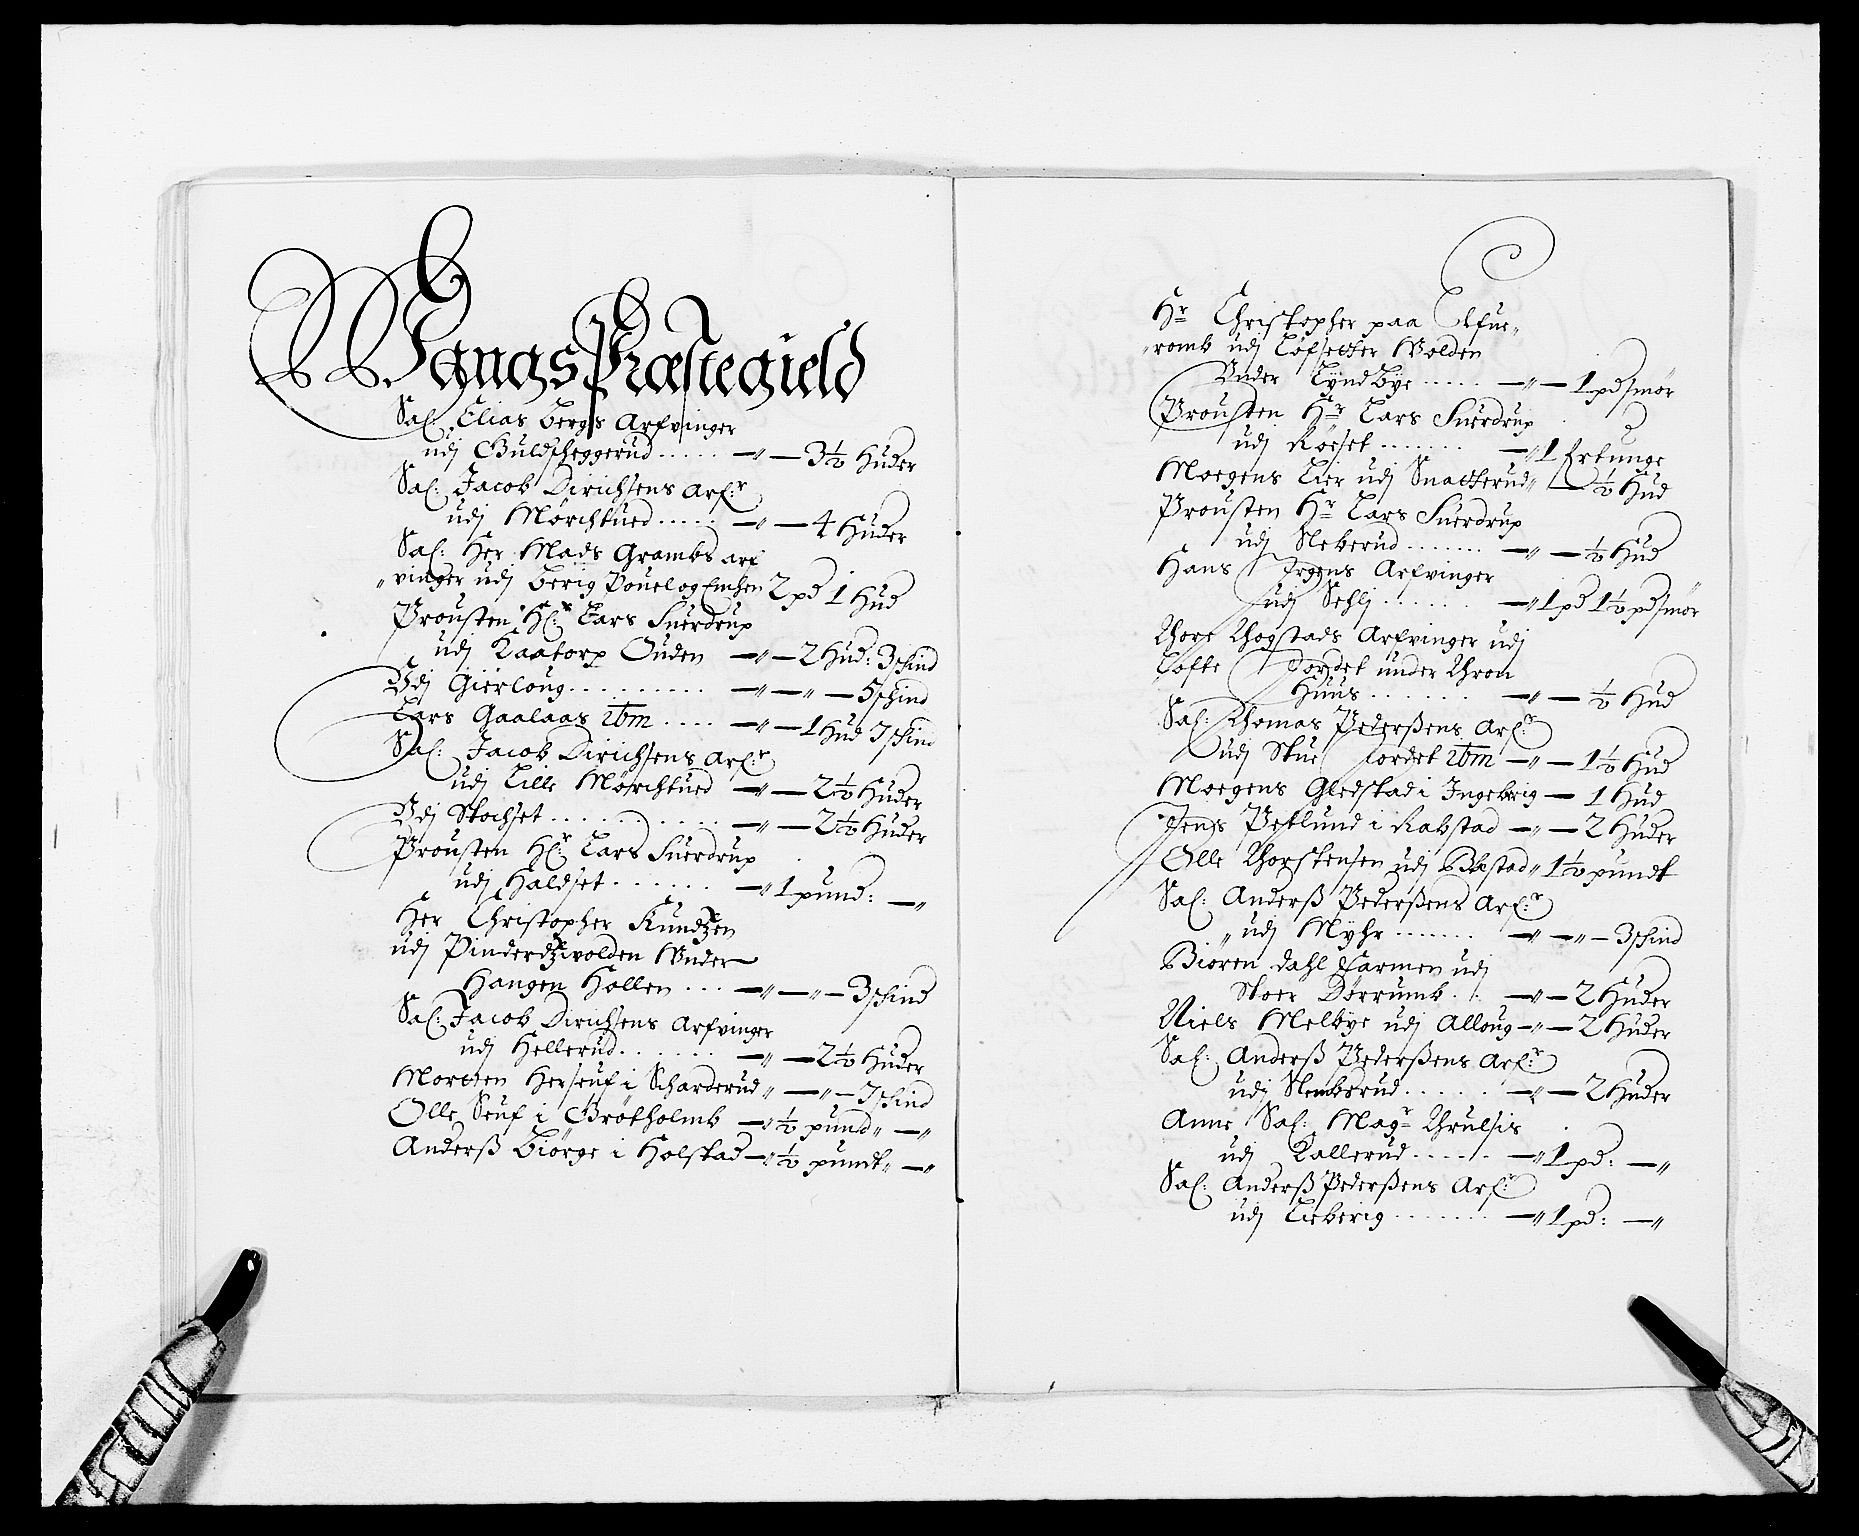 Wgnugs Præstegield
Sal: Elias Bergs Arfvinger
udj Guldscheggerud ..... —"— 3½ Huder
Sal: Jacob Dirichsens Arf:r
udj Mørchtued ..... —"— 4 Huder
Sal: Her Mads Grambs arf
"vinger udj Berig Pouel og Emhen 2 pd 1 Hud
Prousten Hr: Lars Suerdrup
udj Kaatorp Ouden —"— 2 Hud: 3 schind
Udj Gierloug ......... —"—"— 5 schind
Lars Gaalaas ibm .... —"— 1 Hud 7 schind
Sal: Jacob Dirichsens Arf:r
udj Lille Mørchtued —"— 2½ Huder
Udj Stochset .......... —"— 2½ Huder
Prousten Hr: Lars Suerdrup
udj Haldset ...... —" 1 pund: —"
Her Christopher Kundzen
udj Pinderdzwolden Under
Hangen Hollen ... —"—"— 3 schind
Sal: Jacob Dirichsens Arfvinger
udj Hellerud ...... —"— 2½ Huder
Morten Herseuf i Scharderud "—"— 7 schind
Olle Seuf i Grøtholmb —" ½ pund" —"
Anderß Biørge i Holstad —" ½ pundt" —"
Hr Christopher paa Elfue"
"romb udj Løfsetter Wolden
Under Lyndbye ..... —"— 1 pd smør
Prousten Hr Lars Suerdrup
udj Røeset ....... —" 1 Ertunge
Moegens Lier udj Snatterud" — ½ Hud
Prousten Hr Lars Suerdrup
udj Neberud ....... —"— ½ Hud
Hans Jrgens Arfvinger
udj Sehlj ...... —" 1 pd 1½ pd smør
Thore Thogstads Arfvinger udj
Tofte Jordet under Thron
Huus ....... —"— ½ Hud
Sal: Thomas Pederßens Arf:r
udj Stue Jordet ibm —"— 1½ Hud
Moegens Gledstad i Ingeberig — 1 Hud
Jens Petlund i Rabstad —"— 2 Huder
Olle Thorstensen udj Bæstad" 1½ pundt
Sal: Anderß Pederßens Arf:r
" udj Myhr ....... —"—"— 3 schind
Biøren Dahl Farmen udj
Stoer Dørrumb ... —"— 2 Huder
Niels Melbye udj Alloug —"— 2 Huder
Sal: Anderß Pederßens Arf:r
udj Nembsrud ...... —"— 2 Huder
Anne Sal: Magr Thrulsis
udj Kallerud ...... —" 1 pd: —"
Sal: Anderß Pederßens Arf:r
udj Lieberig ....... —" 1 pd: —"